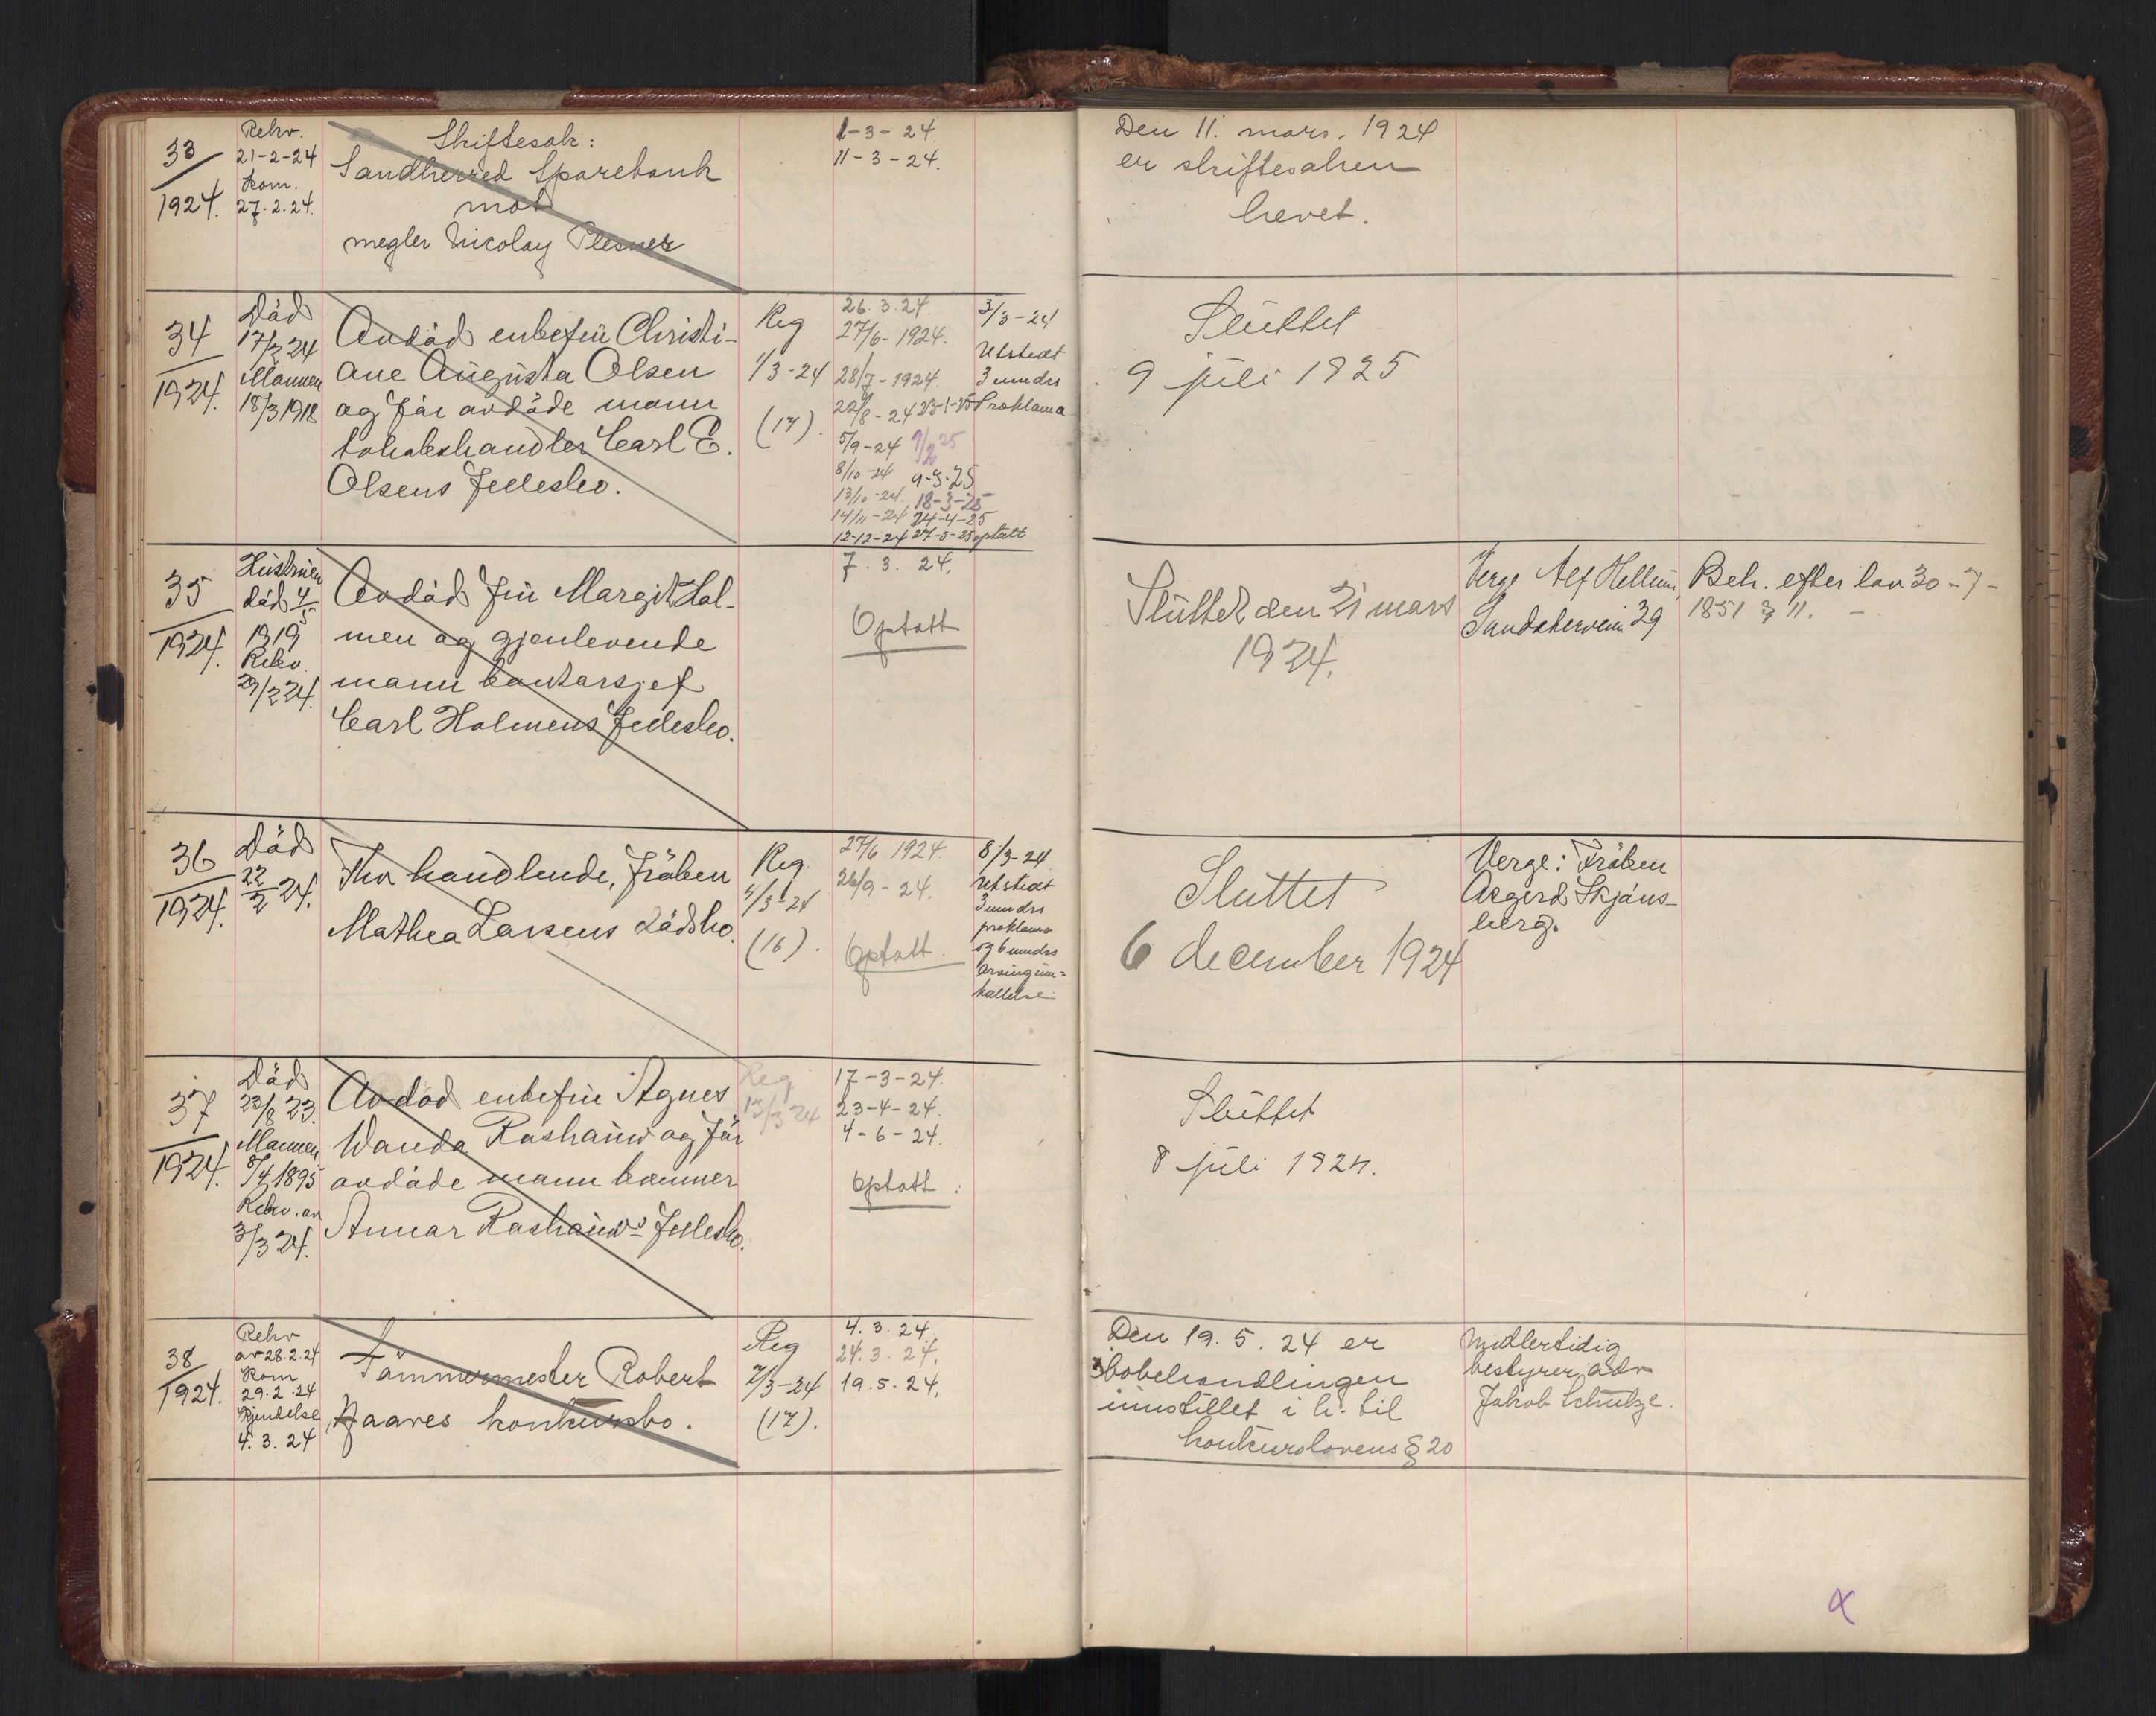 33/1924.
Rekv.
21-2-24
kom.
27.2.24.
Skiftesak:
Sandherred Sparebank
mot
megler Nicolay Plesner
1-3-24
11-3-24.
Den 11. mars. 1924
er skiftesaken
hevet.
34/1924.
Död
17/2 24
Mannen
18/3 1918
Avdöd enkefru Christi-
ane Augusta Olsen
og før avdöde mann
tobakshandler Carl E.
Olsens fellesbo.
Reg
1/3-24
(17).
26.3.24.
27/6-1924.
28/7-1924.
22/8-24 23-1-25
5/9-24 9/2 25
8/10-24 9-3-25
13/10-24. 18-3-25
14/11-24 24-4-25
12-12-24 27-5-25 optatt
3/3-24
Utstedt
3 mndrs
Proklama
Sluttet
9 juli 1925
35/1924.
Hustruen
död 4/5
1919
Rekv.
29/2 24.
Avdöd fru Margit Hol-
men og gjenlevende
mann bankarsjef
Carl Holmens fellesbo.
7.3.24.
Optatt
Sluttet den 21 mars
1924.
Verge Alf Hellum,
Sandakerveien 39
Beh. efter lov 30-7-
1851 § 11. -
36/1924.
Död
22/2 24.
Thv handlende, fröken
Mathea Larsens dödsbo.
Reg.
4/3-24
(16).
27/6 1924.
26/9-24.
Optatt.
8/3-24
Utstedt
3 mndrs
proklama
og 6 mndrs
arvinginn=
kallelse
Sluttet
6 december 1924
Verge: Fröken
Asgerd Skjöns-
berg.
37/1924.
Död
23/8 23.
Mannen
8/4 1895
Rekv. av
3/3 24.
Avdöd enkefru Agnes
Wanda Rashauw og før
avdöde mann
Annar Rashauws fellesbo.
Reg
13/3 24
17-3-24.
23-4-24.
4-6-24.
Optatt:
Sluttet
8 juli 1924.
38/1924.
Rekv
av 28.2.24
Kom
29.2.24
Kjendelse
4.3.24
Tömmermester Robert
Haares konkursbo.
Reg
7/3-24
(17).
4.3.24.
24.3.24.
19.5.24.
Den 19.5.24 er
bobehandlingen
innstillet i h. til
konkurslovens § 20
Midlertidig
bestyrer, adv
Jakob Schutze.
x